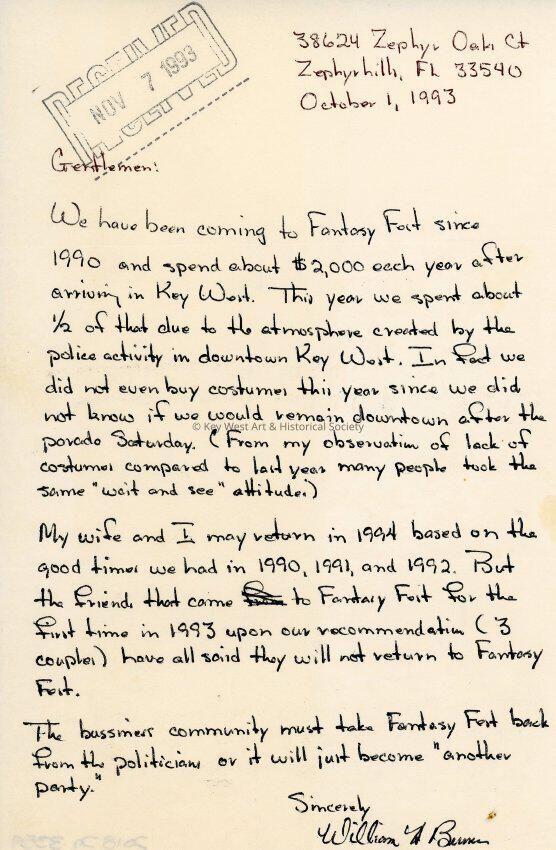 RECEIVED
NOV 7 1993
38624 Zephyr Oak Ct
Zephyrhills, FL 33540
October 1, 1993
Gentlemen:
We have been coming to Fantasy Fest since
1990 and spend about $2,000 each year after
arriving in Key West. This year we spent about
1/2 of that due to the atmosphere created by the
police activity in downtown Key West. In fact we
did not even buy costumes this year since we did
not know if we would remain downtown after the
© Key West Art & Historical Society
parade Saturday. (From my observation of lack of
costumes compared to last year many people took the
same "wait and see" attitude.)
My wife and I may return in 1994 based on the
good times we had in 1990, 1991, and 1992. But
the friends that came to Fantasy Fest for the
first time in 1993 upon our recommendation (3
couples) have all said they will not return to Fantasy
Fest.
The bussiness community must take Fantasy Fest back
from the politicians or it will just become "another
party."
Sincerely
William H